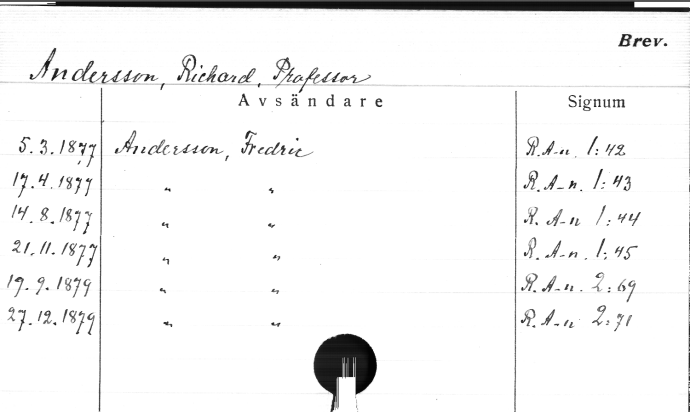 Brev.
Andersson, Richard, Professor
Avsändare Signum
5.3.1877 Andersson, Fredric R.A-n. 1:42
17.4.1877 " " R.A-n. 1:43
14.8.1877 " " R.A-n 1:44
21.11.1877 " " R.A-n. 1:45
19.9.1879 " " R.A-n. 2:69
27.12.1879 " " R.A-n 2:71